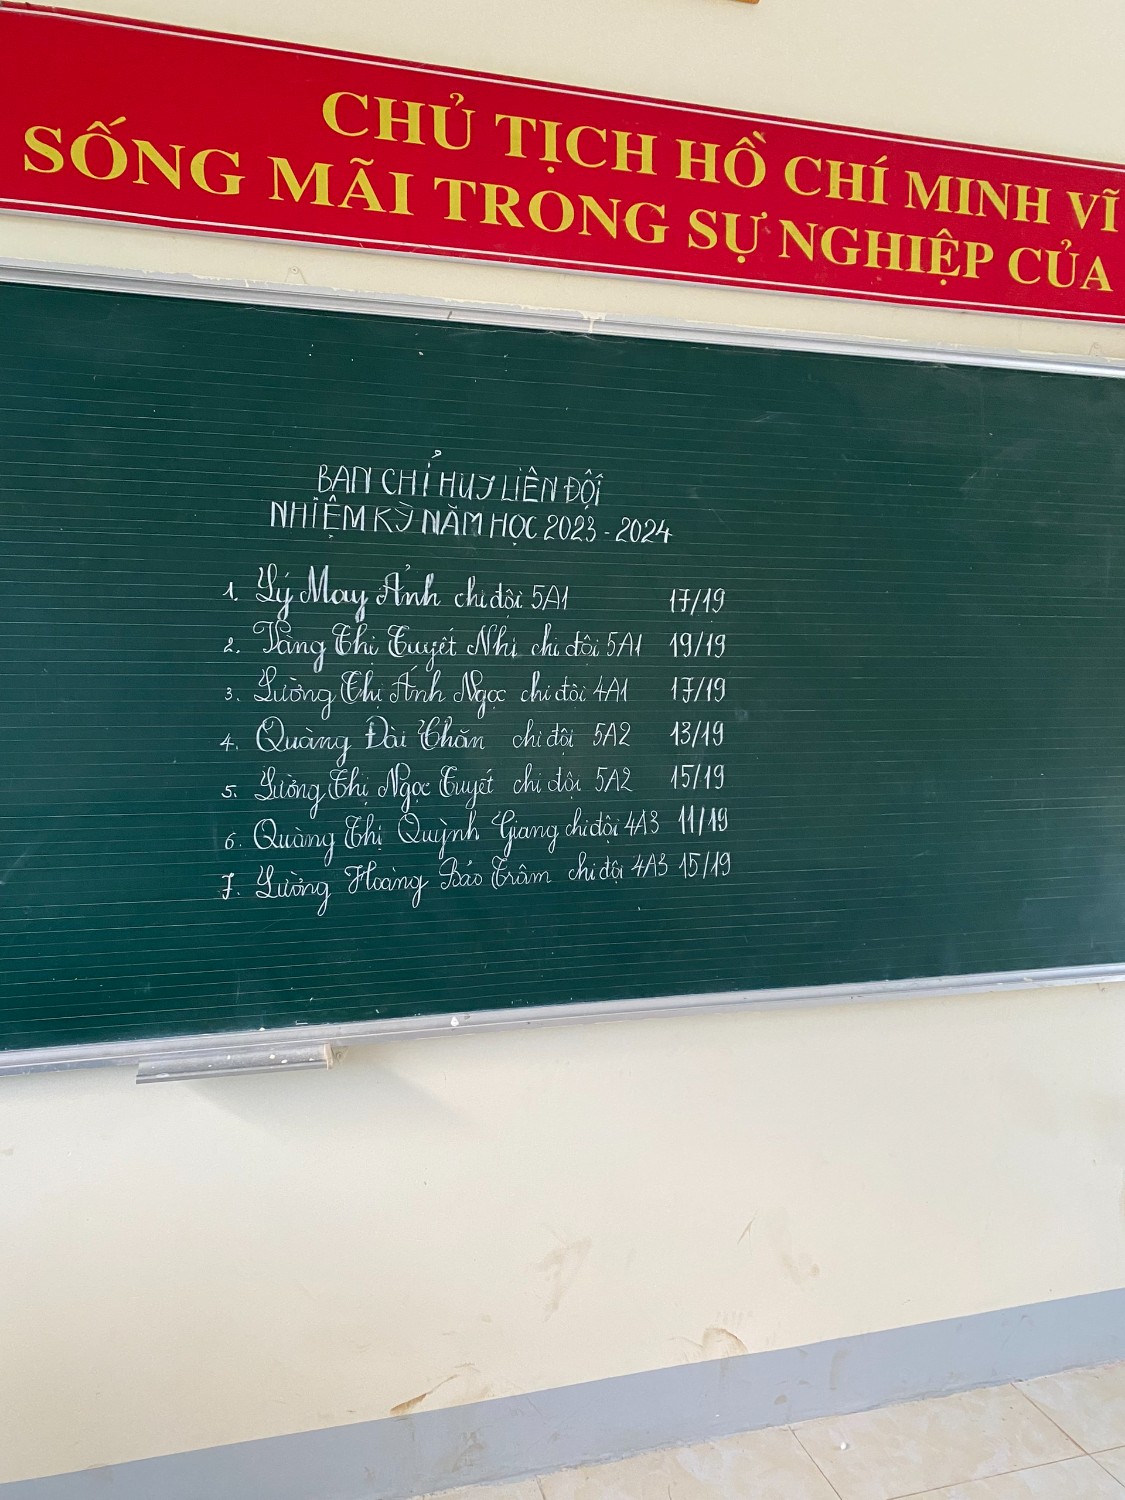 CHỦ TỊCH HỒ CHÍ MINH VĨ
SỐNG MÃI TRONG SỰ NGHIỆP CỦA
BAN CHỈ HUY LIÊN ĐỘI
NHIỆM KỲ NĂM HỌC 2023 - 2024
1. Lý May Ảnh chi đội 5A1 17/19
2. Vàng Thị Tuyết Nhi chi đội 5A1 19/19
3. Lường Thị Ánh Ngọc chi đội 4A1 17/19
4. Quàng Đài Chăn chi đội 5A2 13/19
5. Lường Thị Ngọc Tuyết chi đội 5A2 15/19
6. Quàng Thị Quỳnh Giang chi đội 4A3 11/19
7. Lường Hoàng Bảo Trâm chi đội 4A3 15/19